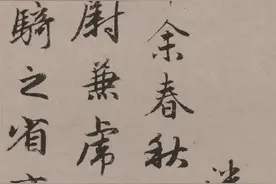 余春秋
尉兼虎
騎之省